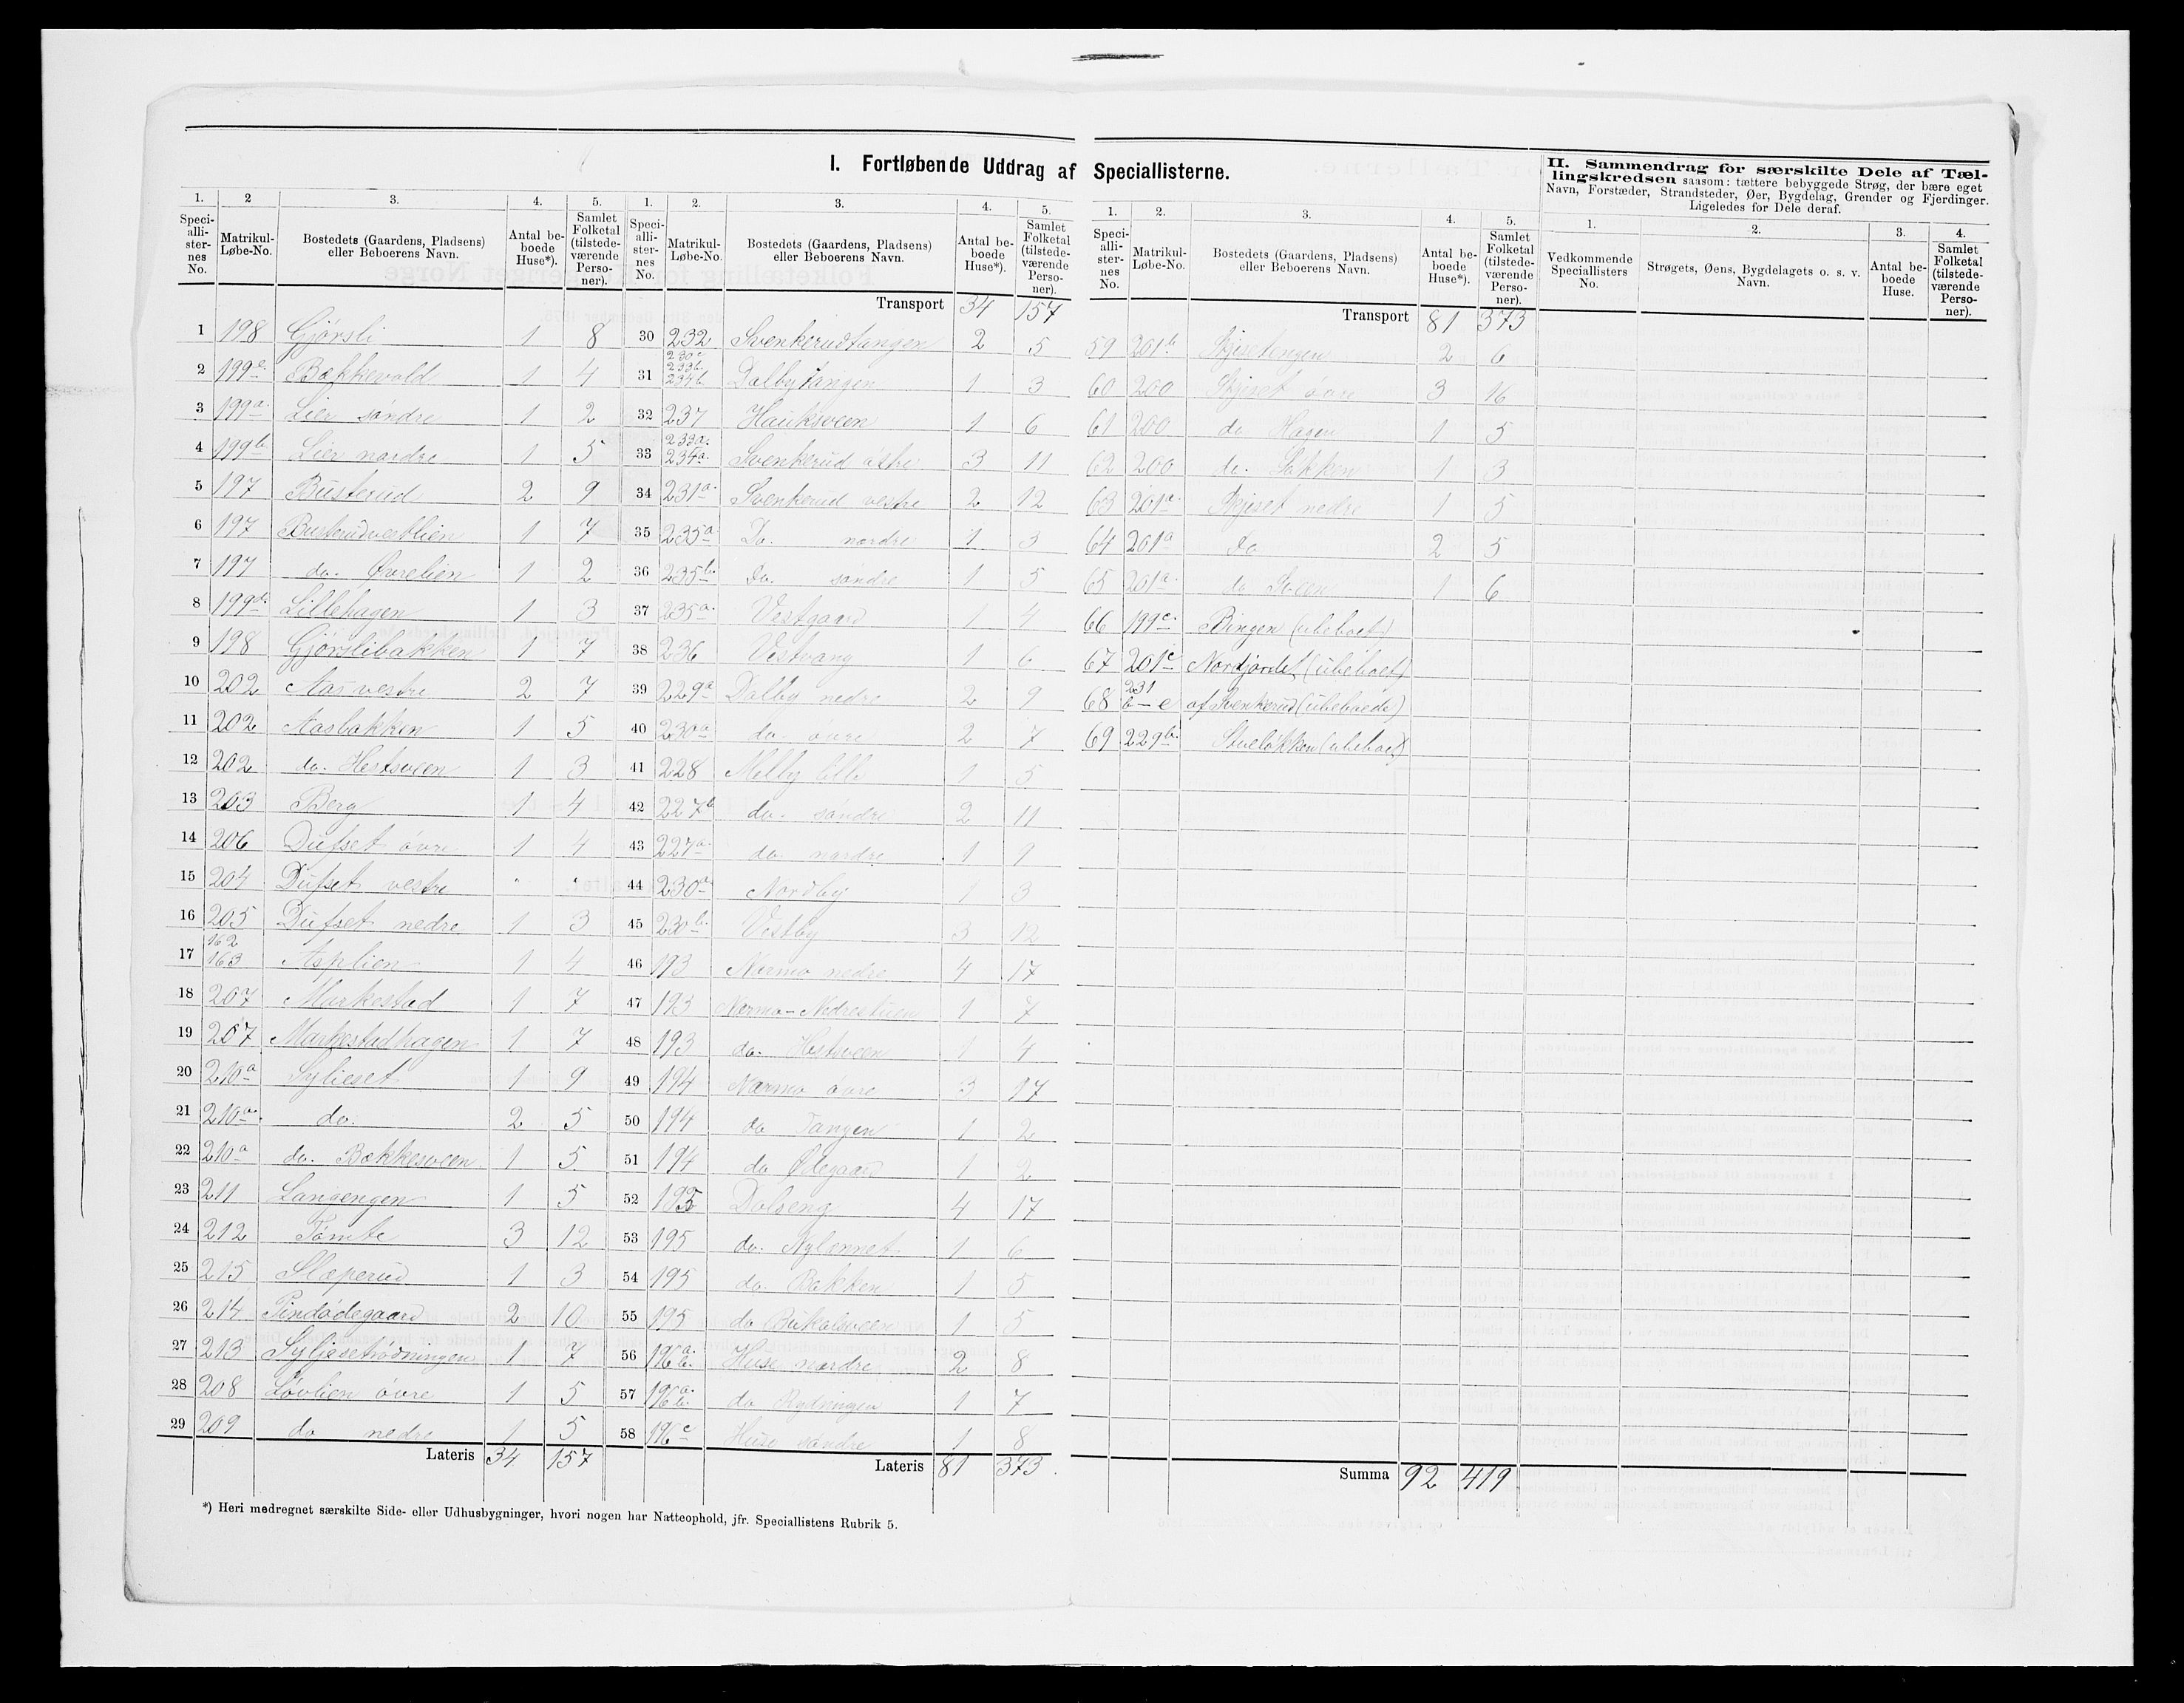 I. Fortløbende Uddrag af Speciallisterne.
II. Sammendrag for særskilte Dele af Tællingskredsen saasom: tættere bebyggede Strøg, der bære eget Navn, Forstæder, Strandsteder, Øer, Bygdelag, Grender og Fjerdinger. Ligeledes for Dele deraf.
1. 2 3. 4. 5.
Speciallisternes No. Matrikul-Løbe-No. Bostedets (Gaardens, Pladsens) eller Beboerens Navn. Antal beboede Huse*). Samlet Folketal (tilstedeværende Personer).
1 198 Gjörsli 1 8
2 199e. Bækkevold 1 4
3 199a. Lier söndre 1 2
4 199b. Lier nordre 1 5
5 197 Busterud 2 9
6 197 Busterudvestlien 1 7
7 197 do. Øvrelien 1 2
8 199d. Lillehagen 1 3
9 198 Gjörslibakken 1 7
10 202 Aas vestre 2 7
11 202 Aasbakken 1 5
12 202 do. Hestsveen 1 3
13 203 Berg 1 4
14 206 Dufset övre 1 4
15 204 Dufset vestre " "
16 205 Dufset nedre 1 3
17 162 163 Asplien 1 4
18 207 Markestad 1 7
19 207 Markestadhagen 1 7
20 210a Syljeset 1 9
21 210a. do. 2 5
22 210a do. Bækkesveen 1 5
23 211 Langengen 1 5
24 212 Tömte 3 12
25 215 Slæperud 1 3
26 214 Pindödegaard 2 10
27 213 Syljesetrödningen 1 7
28 208 Lövlien övre 1 5
29 209 do nedre 1 5
Lateris 34 157
1. 2. 3. 4. 5.
Speciallisternes No. Matrikul-Løbe-No. Bostedets (Gaardens, Pladsens) eller Beboerens Navn. Antal beboede Huse*). Samlet Folketal (tilstedeværende Personer).
Transport 34 157
30 232 Svenkerudtangen 2 5
31 230c 233b. 234b. Dalbytangen 1 3
32 237 Hauksveen 1 6
33 233a. 234a. Svenkerud östre 3 11
34 231a. Svenkerud vestre 2 12
35 235a. Do. nordre 1 3
36 235b. Do. söndre 1 5
37 235a. Vestgaard 1 4
38 236 Vestvang 1 6
39 229a Dalby nedre 2 9
40 230a do övre 2 7
41 228 Melby lille 1 5
42 227b do. söndre 2 11
43 227a. do. nordre 1 9
44 230a. Nordby 1 3
45 230b. Vestby 3 12
46 193 Nærmo nedre 4 17
47 193 Nærmo-Nedrestuen 1 7
48 193 do. Hestsveen 1 4
49 194 Nærmo övre 3 17
50 194 do Tangen 1 2
51 194 do Ødegaard 1 2
52 195 Dolseng 4 17
53 195 do. Nylænnet 1 6
54 195 do. Bakken 1 5
55 195 do 1 5
56 196a. b. Huse nordre 2 8
57 196a. b. do Rydningen 1 7
58 196c Huse söndre 1 8
Lateris 81 373
1. 2. 3. 4. 5.
Speciallisternes No. Matrikul-Løbe-No. Bostedets (Gaardens, Pladsens) eller Beboerens Navn. Antal beboede Huse*). Samlet Folketal (tilstedeværende Personer).
Transport 81 373
59 201b 2 6
60 200 övre 3 16
61 200 do Hagen 1 5
62 200 do. 1 3
63 201a. nedre 1 5
64 201a Do 2 5
65 201a. do Sveen 1 6
66 199c. Bingen (ubeboet)
67 201c Nordjordet (ubeboet)
68 231 b-e af Svenkerud (ubeboede)
69 229b. Stuelökken (ubeboet)
Summa 92 419
1. 2. 3. 4.
Vedkommende Speciallisters No. Strøgets, Øens, Bygdelagets o. s. v. Navn. Antal beboede Huse. Samlet Folketal (tilstedeværende Personer).
*) Heri medregnet særskilte Side- eller Udhusbygninger, hvori nogen har Natteophold, jfr. Speciallistens Rubrik 5.